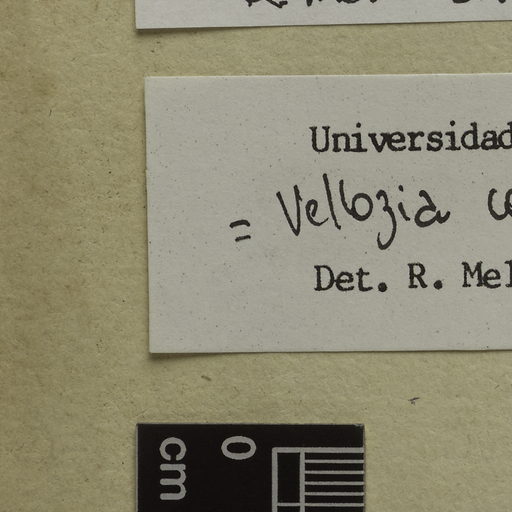 Universidad
= Vellozia
Det. R. Mel
0
cm